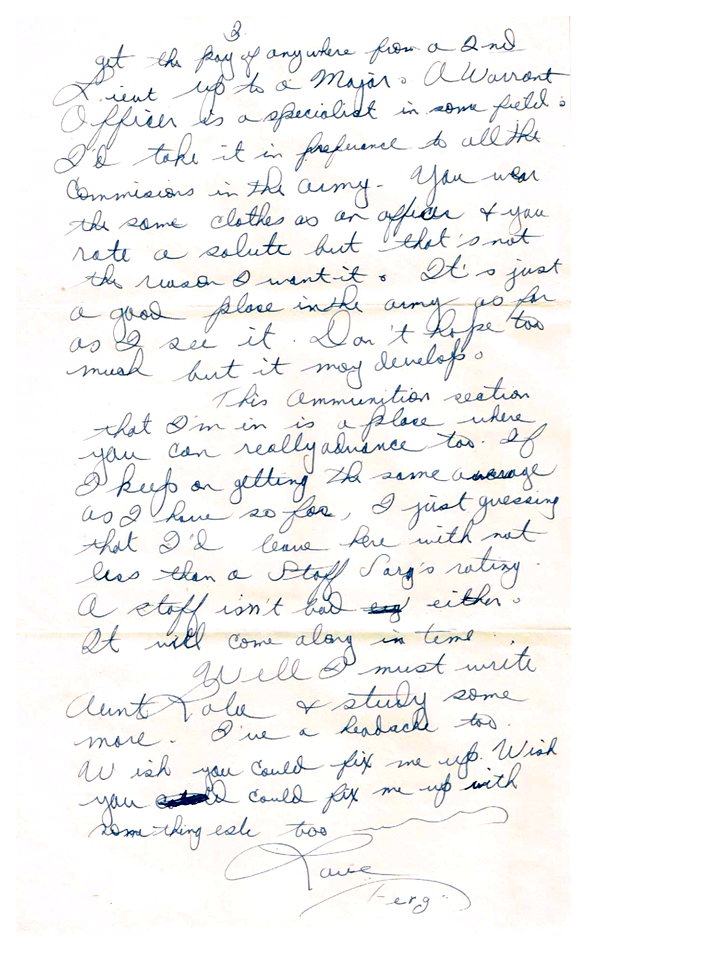 3
get the pay of anywhere from a 2nd
Lieut up to a Major. A Warrant
Officer is a specialist in some field.
I'd take it in preferance to all the
Commisions in the army. You wear
the same clothes as an officer & you
rate a salute but that's not
the reason I want it. It's just
a good place in the army as far
as I see it. Don't hope too
much but it may develop.
This Ammunition section
that I'm in is a place where
you can really advance too. If
I keep on getting the same average
as I have so far, I just guessing
that I'd leave here with not
less than a Staff Sarg's rating.
A staff isn't bad either.
It will come along in time.
Well I must write
Aunt & study some
more. I've a headache too.
Wish you could fix me up. Wish
you could fix me up with
something esle too
Love
Ferg.